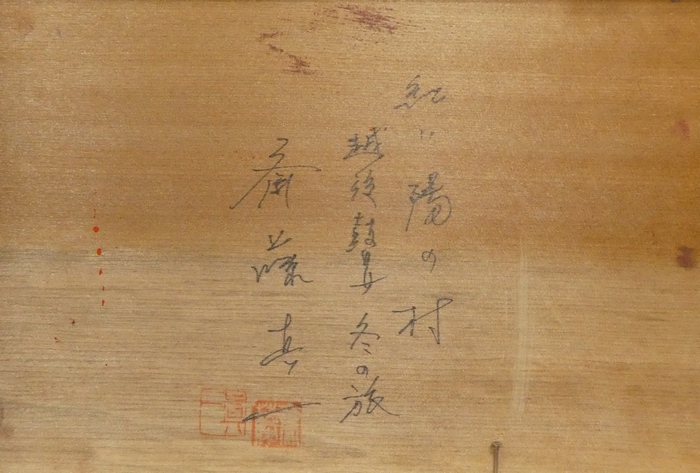 紅い陽の村
越後瞽女冬の旅
斎藤真一